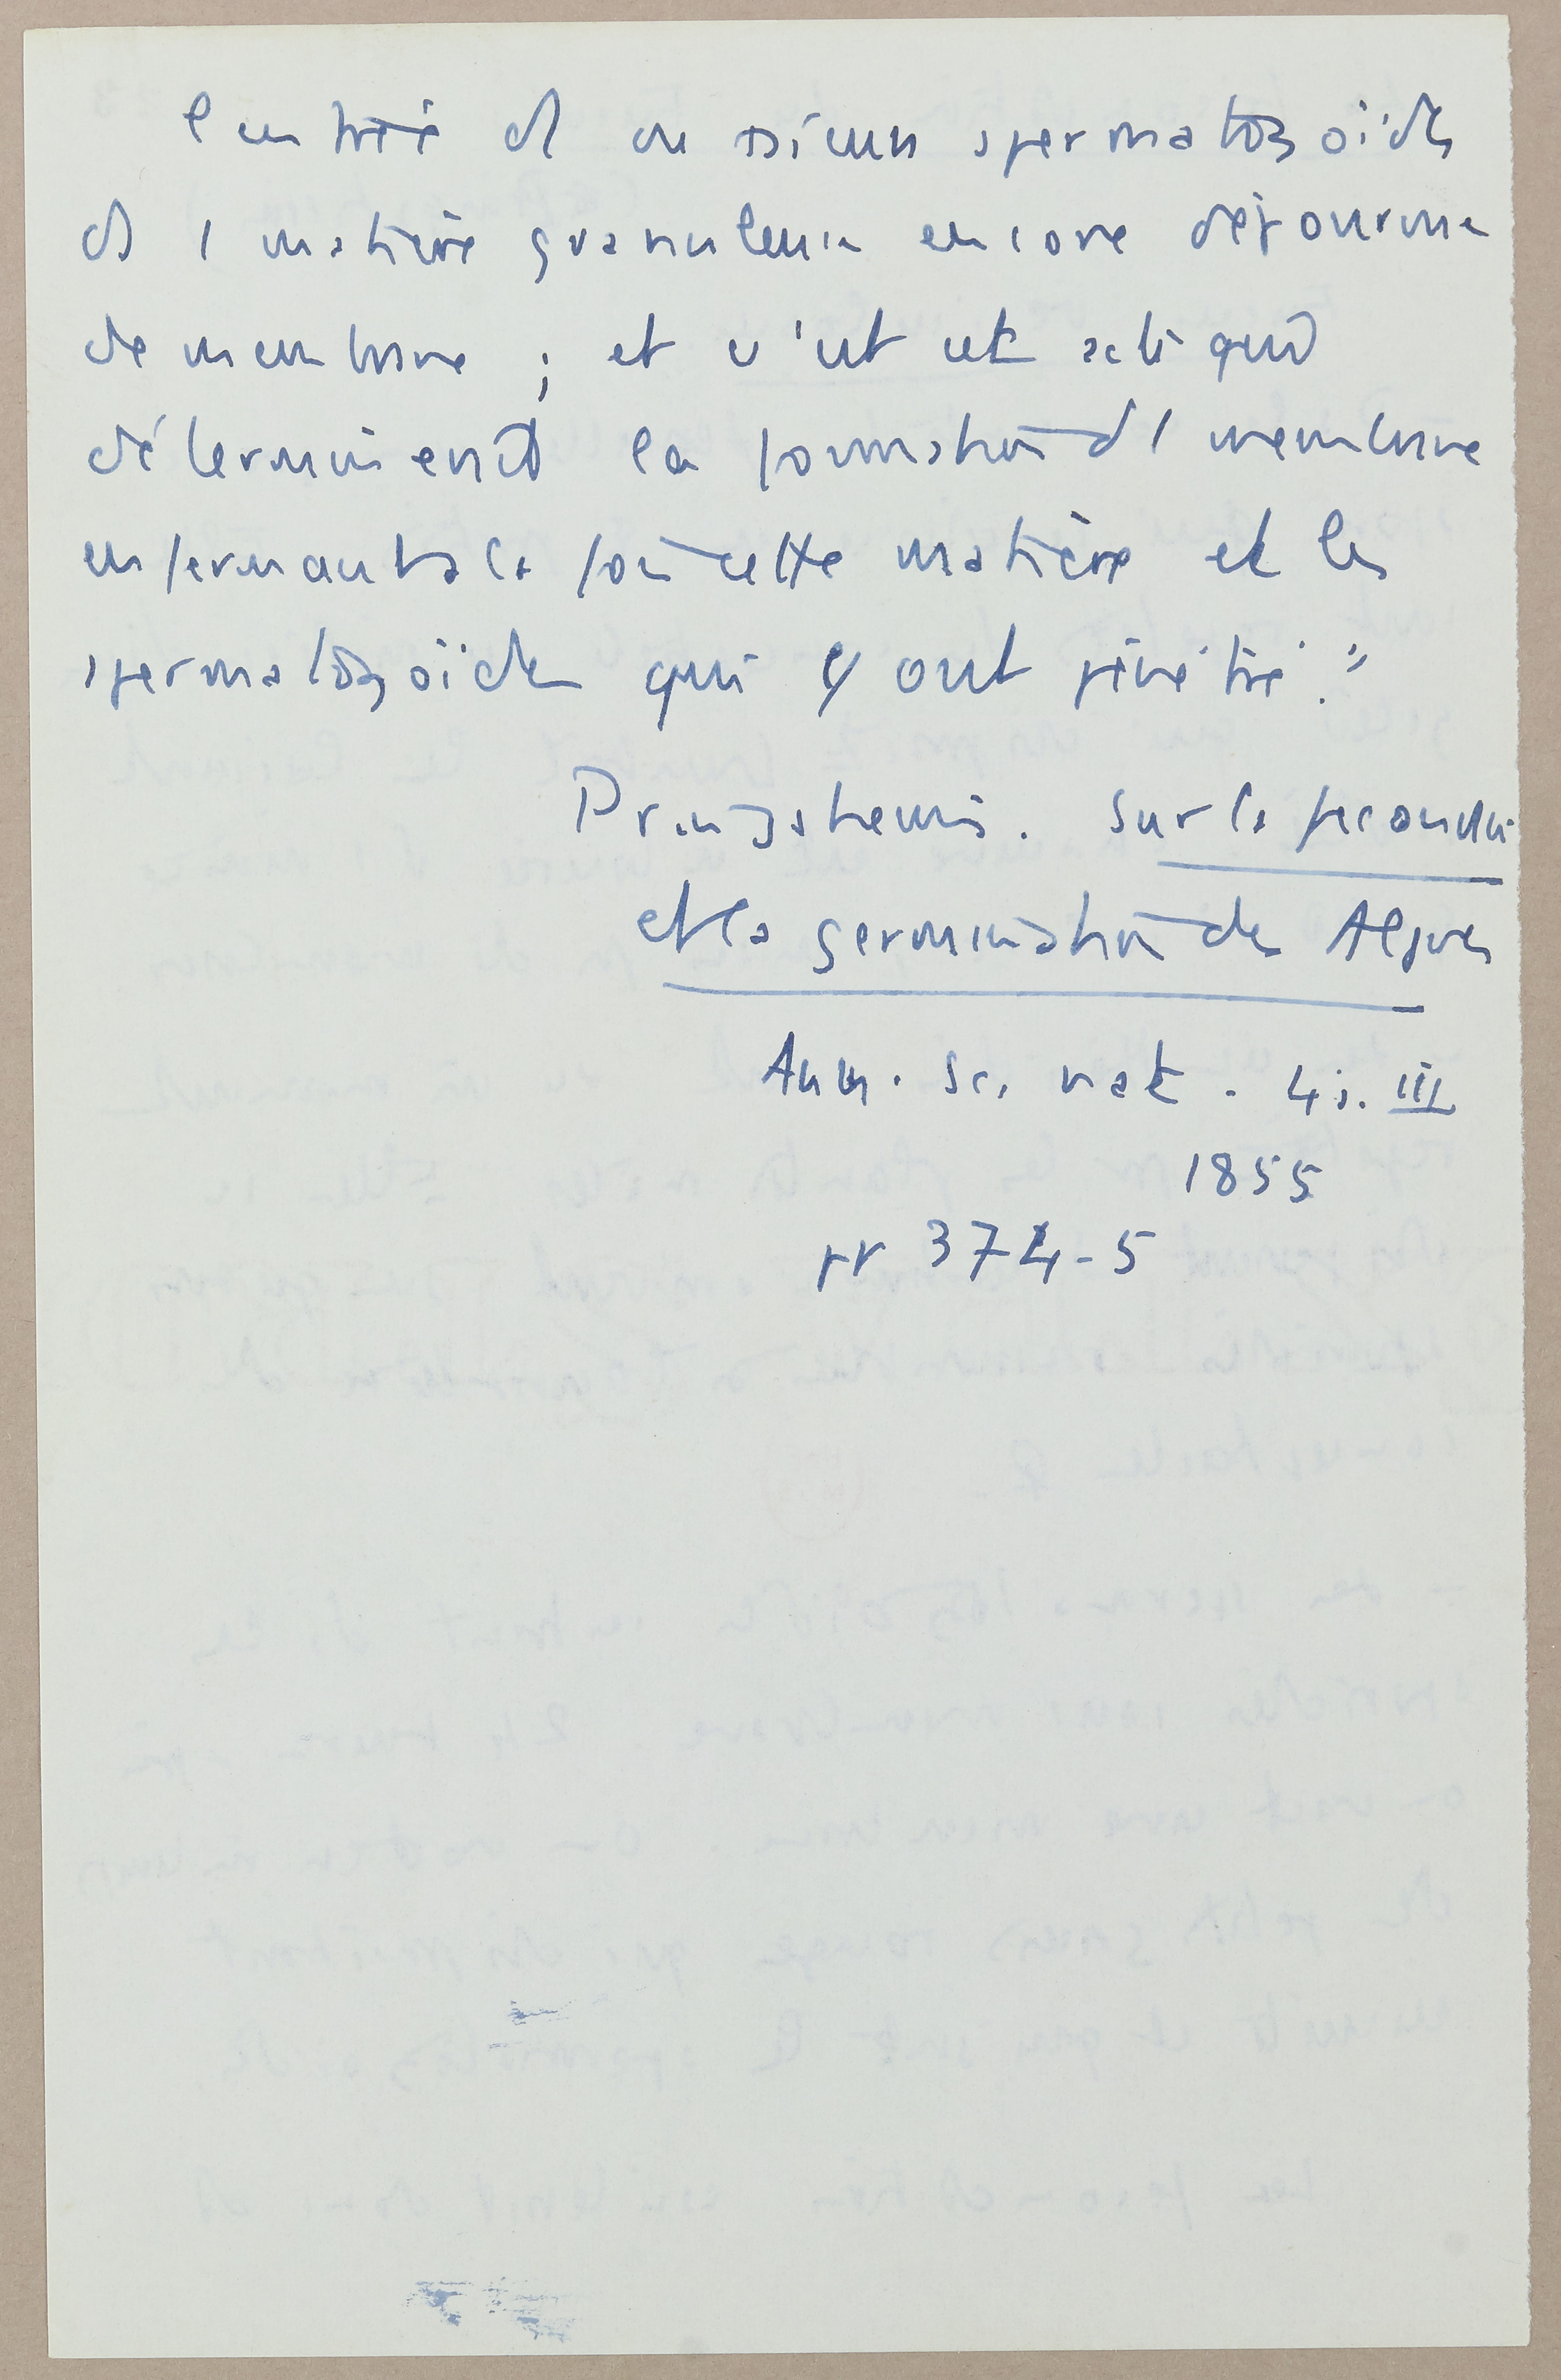 l'entrée d ou plusieurs spermatozoïdes
ds l matière granuleuse encore dépourvue
de membrane ; et c'est cet acte qui
déterminerait la formation d l membrane
enfermant à la fois cette matière et les
spermatozoïdes qui y ont pénétré."
Pringsheim. Sur la fécondn
et la germination des Algues
Ann. Sc. nat. 4 s. III
1855
pp 374-5